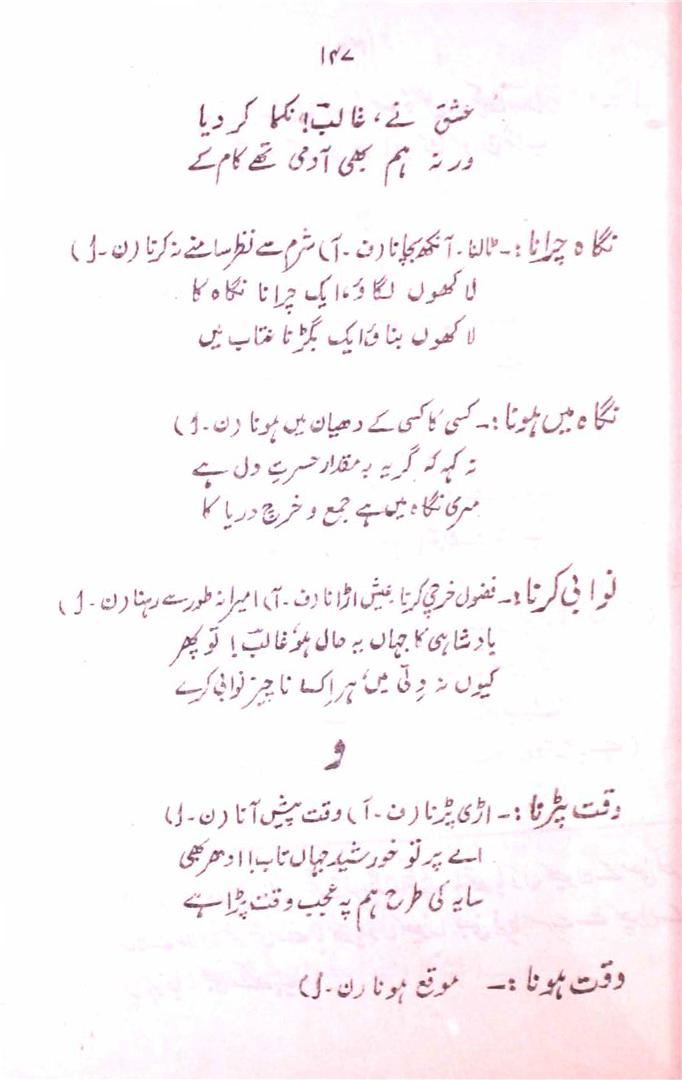 ۱۴۷
عشق نے، غالبؔ! نکما کر دیا
ورنہ ہم بھی آدمی تھے کام کے
نگاہ چرانا :۔ ٹالنا۔ آنکھ بچانا (ف۔آ) شرم سے نظر سامنے نہ کرنا (ن۔ل)
لاکھوں لگاؤ، ایک چرانا نگاہ کا
لاکھوں بناؤ ایک بگڑنا عتاب میں
نگاہ میں ہونا :۔ کسی کا کسی کے دھیان میں ہونا (ن۔ل)
نہ کہہ کہ گریہ بہ مقدار حسرتِ دل ہے
مری نگاہ میں ہے جمع و خرچ دریا کا
نوابی کرنا :۔ فضول خرچی کرنا عیش اڑانا (ف۔آ) امیرانہ طور سے رہنا (ن۔ل)
بادشاہی کا جہاں یہ حال ہو، غالبؔ! تو پھر
کیوں نہ دِلّی میں، ہر اِک نا چیز نوابی کرے
و
وقت پڑنا :۔ اڑی پڑنا (ف۔آ) وقت پیش آنا (ن۔ل)
اے پرتوِ خورشیدِ جہاں تاب! ادھر بھی
سایہ کی طرح ہم پہ عجب وقت پڑا ہے
وقت ہونا :۔ موقع ہونا (ن۔ل)